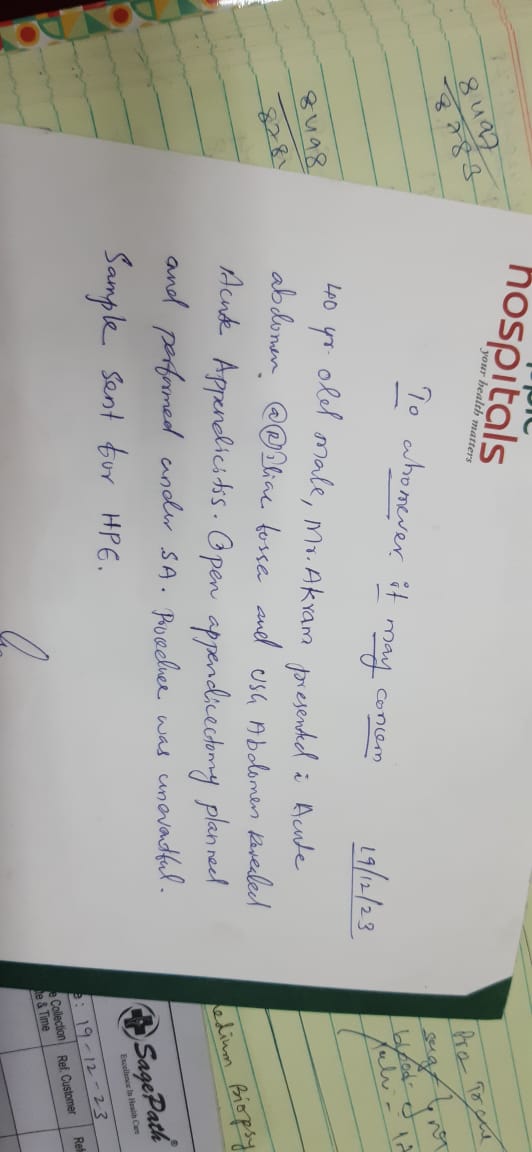 hospitals
your health matters
To whomever it may concern
19/12/23
40 yr. old male, Mr. Akram presented c Acute
abdomen @ (R) Iliac fossa and USG Abdomen revealed
Acute Appendicitis. Open appendicectomy planned
and performed under SA. Procedure was uneventful.
Sample sent for HPE.
8497
8783
8498
878
SagePath®
Excellence In Health Care
: 19-12-23
Collection
& Time
Ref. Customer
Ref
edium Biopsy